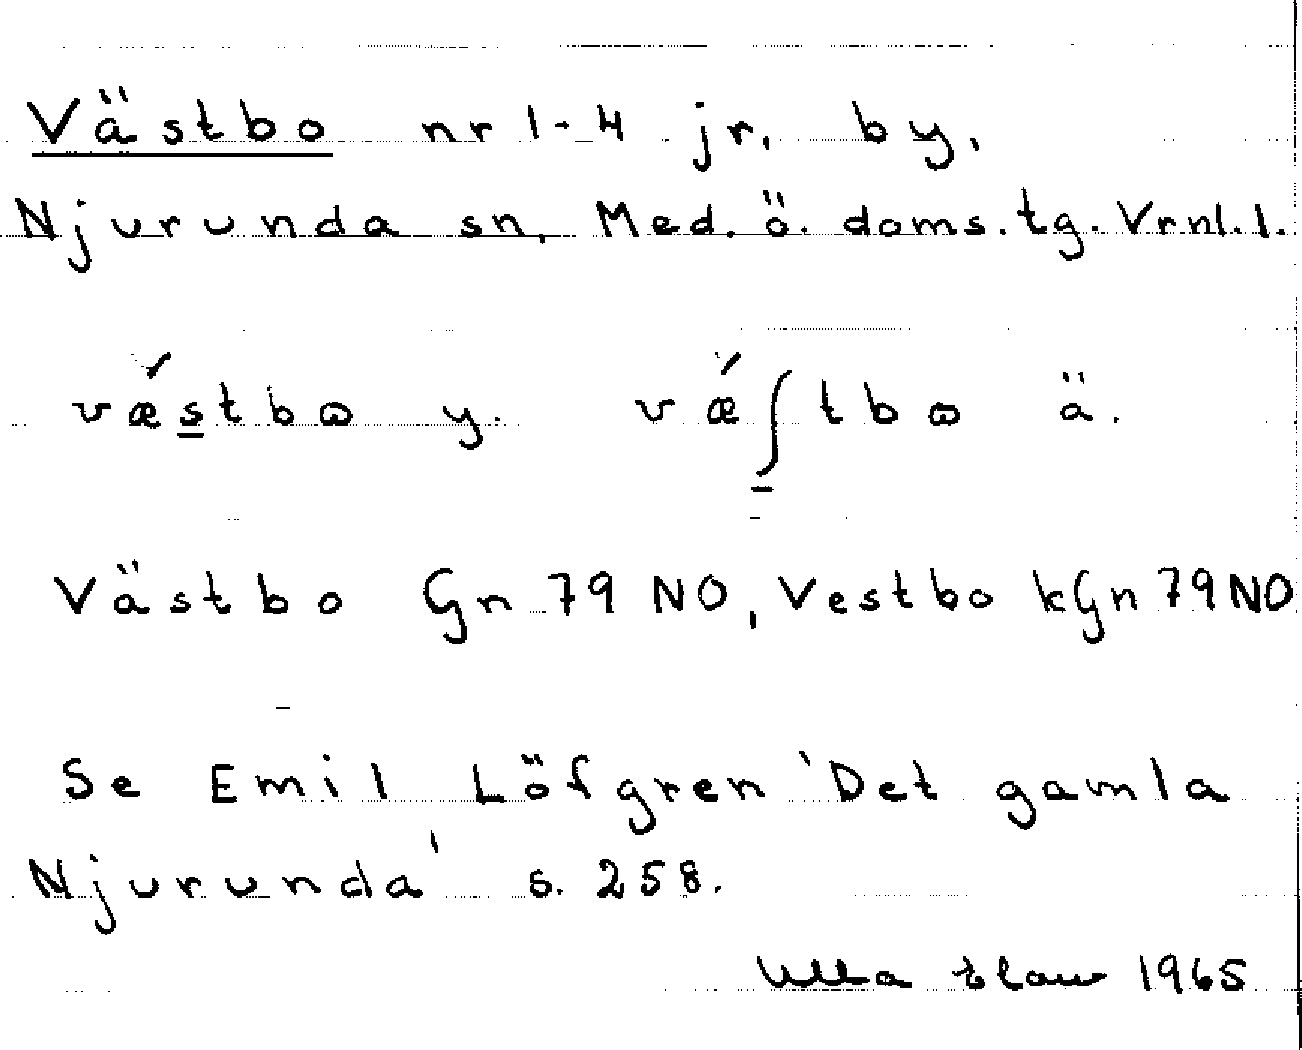 Västbo nr 1-4 jr, by,
Njurunda sn, Med. ö. doms. tg. Vrnl. l.
væ̌s̲tbɷ y. væ̌ʃ̲tbɷ ä.
Västbo Gn 79 NO, Vestbo kGn 79 NO
Se Emil Löfgren 'Det gamla
Njurunda' s. 258.
Ulla 1965